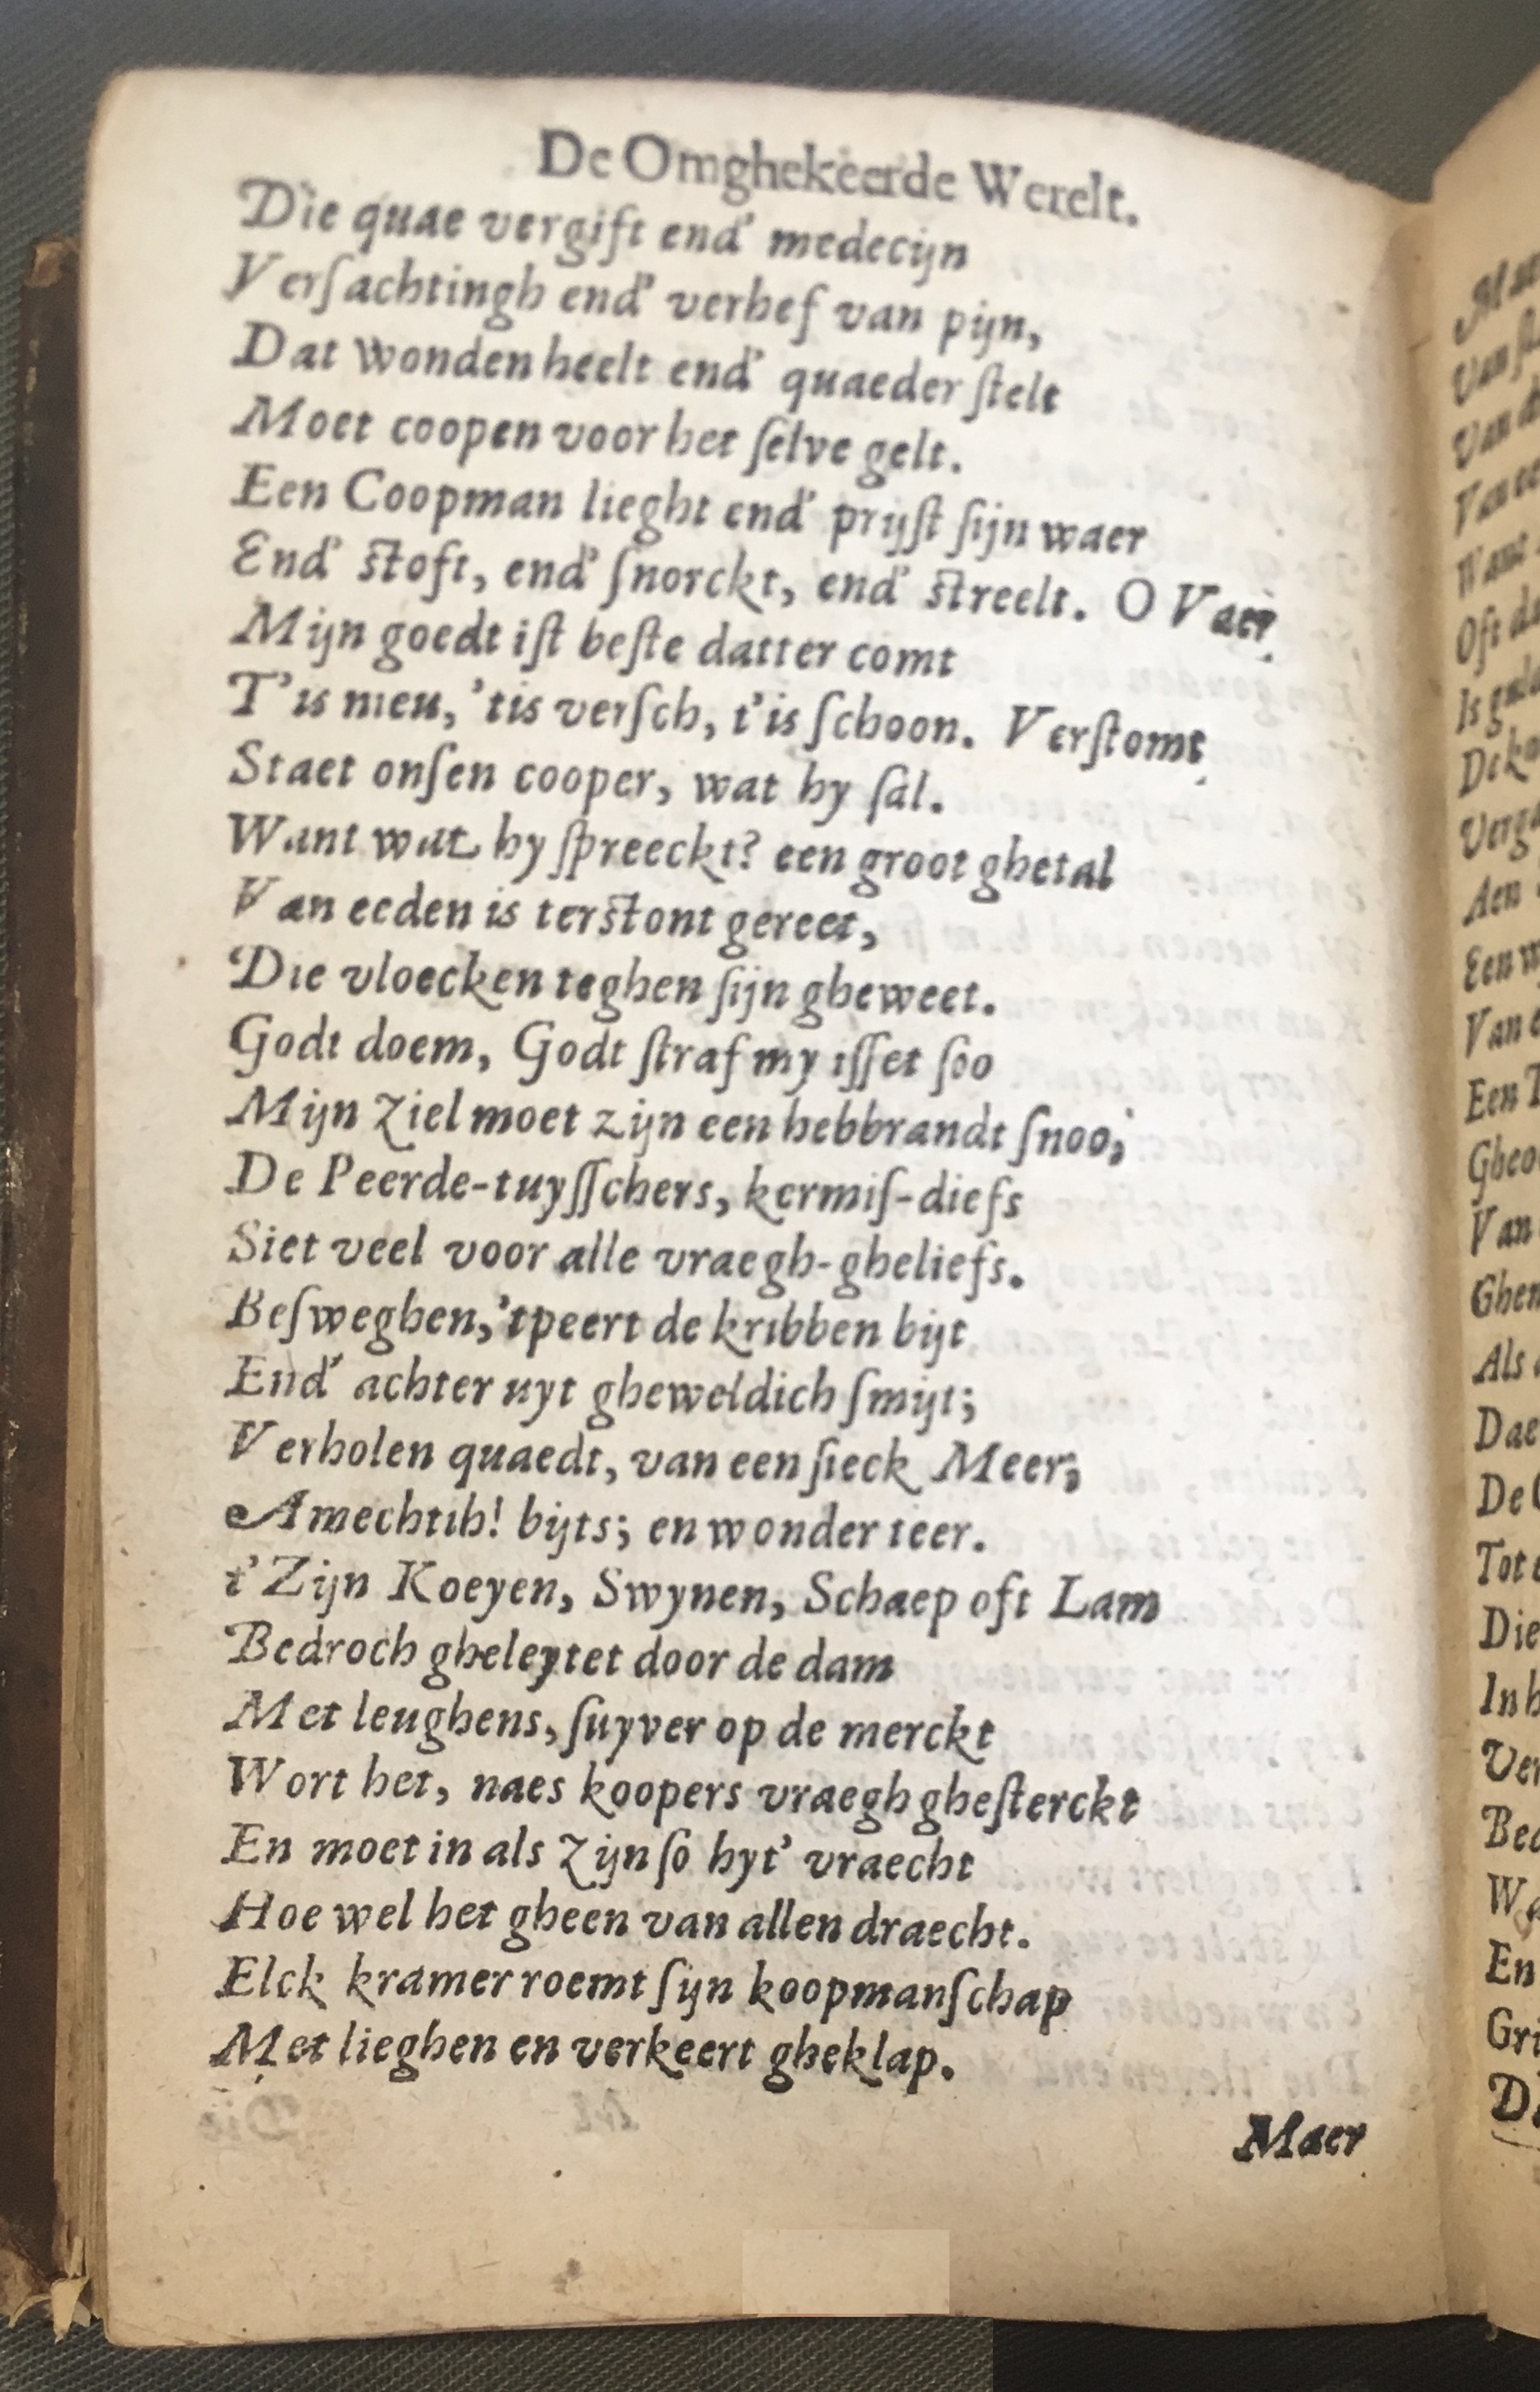 De Omghekeerde Werelt.
Die quae vergift end' medecijn
Verſachtingh end' verhef van pijn,
Dat wonden heelt end' quaeder ſtelt
Moet coopen voor het ſelve gelt.
Een Coopman lieght end' prijſt ſijn waer
End' ſtoft, end' ſnorckt, end' ſtreelt. O Vaer
Mijn goedt iſt beſte datter comt
T'is nieu, 'tis verſch, t'is ſchoon. Verſtomt
Staet onſen cooper, wat hy ſal.
Want wat hy ſpreeckt? een groot ghetal
Van eeden is terſtont gereet,
Die vloecken teghen ſijn gheweet.
Godt doem, Godt ſtraf my iſſet ſoo
Mijn ziel moet zijn een hebbrandt ſnoo;
De Peerde-tuyſſchers, kermiſ-diefs
Siet veel voor alle vraegh-gheliefs.
Beſweghen, 'tpeert de kribben bijt
End' achter uyt gheweldich ſmijt;
Verholen quaedt, van een ſieck Meer;
Amechtih! bijts; en wonder teer.
t'Zijn Koeyen, Swynen, Schaep oft Lam
Bedroch gheleytet door de dam
Met leughens, ſuyver op de merckt
Wort het, naes koopers vraegh gheſterckt
En moet in als zijn ſo hyt' vraecht
Hoe wel het gheen van allen draecht.
Elck kramer roemt ſijn koopmanſchap
Met lieghen en verkeert gheklap.
Maer